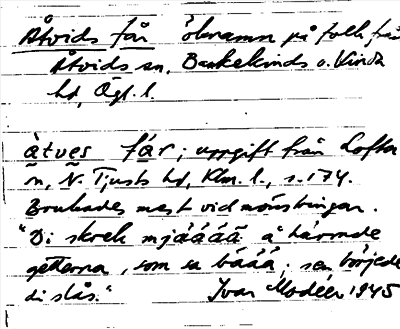 Åtvids får öknamn på folk från
Åtvids sn, Bankekinds o. Kinda
hd, Ögl. l.
àtves fár; uppgift från Lofta
sn, N. Tjusts hd, Klm. l., s. 174.
Brukades mest vid mönstringar.
"Di skrek mjäåäå å härmde
getterna, som sa bäää; sen börjede
di slås."
Ivar Modéer 1945